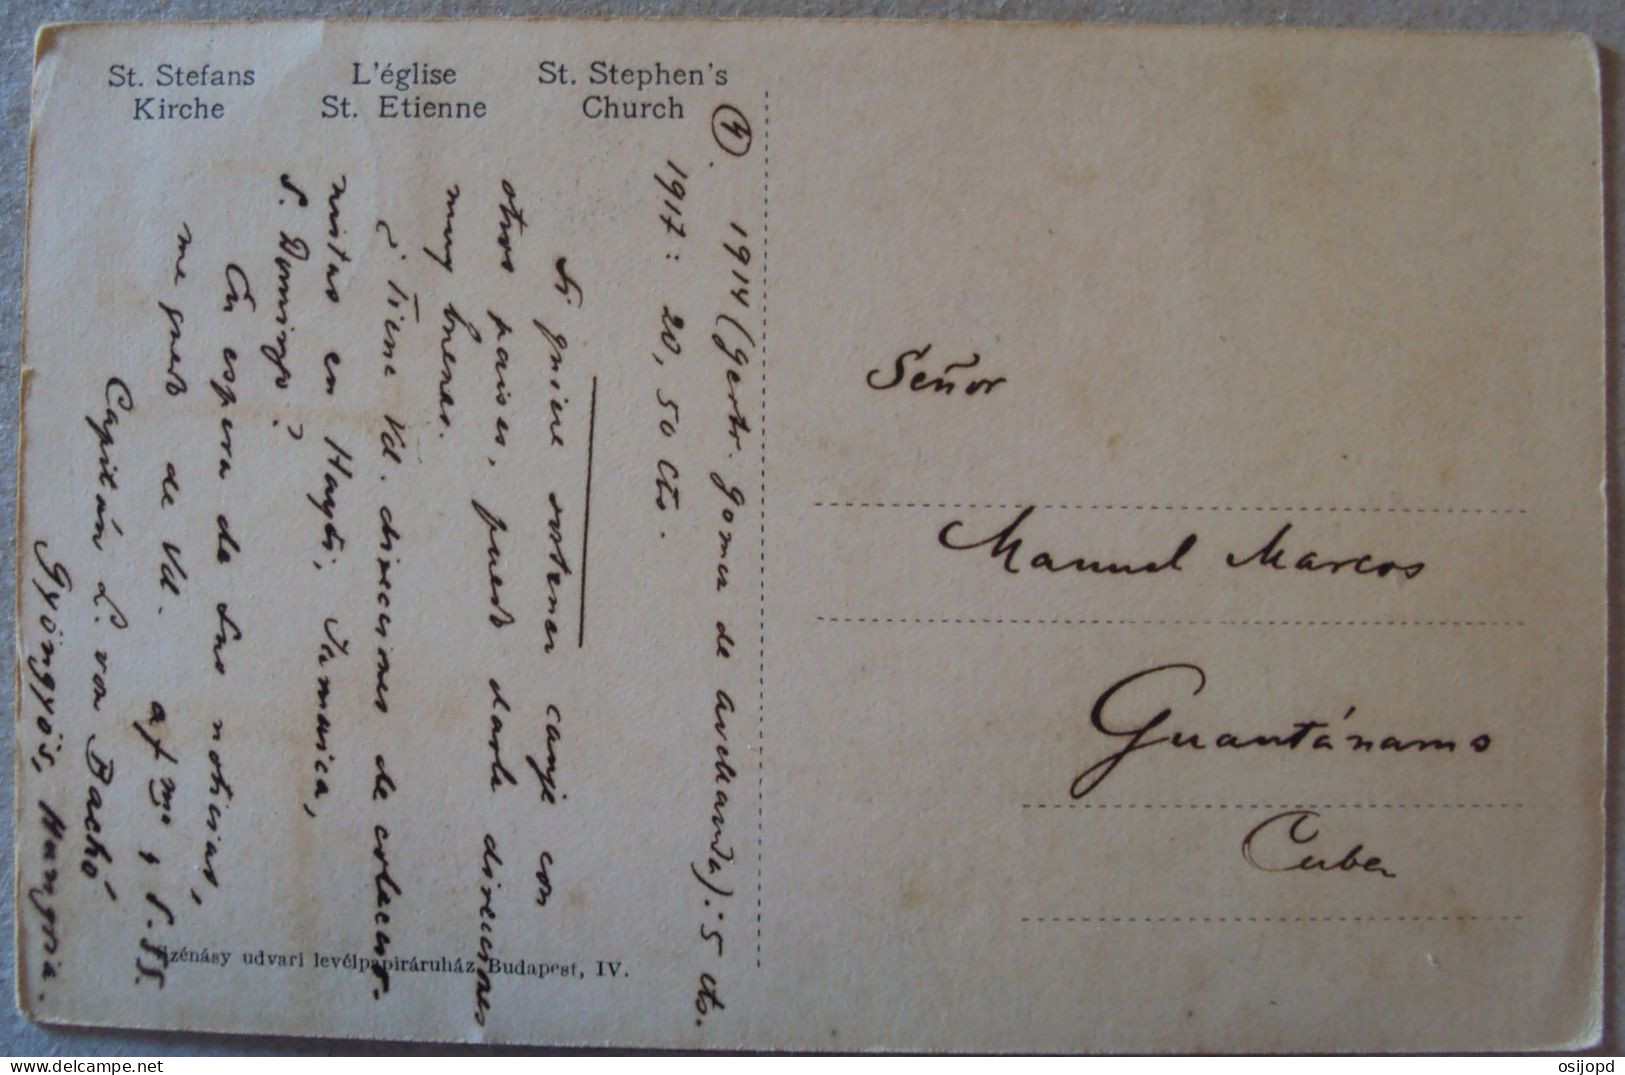 St. Stefans Kirche
L'église St. Etienne
St. Stephen's Church
④
1914 (Gertr. Gomez de Avellaneda): 5 cts.
1917: 20, 50 cts.
Si quiere sostener canje con
otros paises, puedo darle direcciones
muy buenas.
¿Tiene Vd. direcciones de coleccio-
nistas en Hayti, Jamaica,
S. Domingo?
En espera de sus noticias,
me quedo de Vd. afmo, s. SS.
Capitán L. von Bachó
Gyöngyös, Hungria.
Señor
Manuel Marcos
Guantánamo
Cuba
Szénásy udvari levélpapiráruház, Budapest, IV.
delcampe.net
osijopd